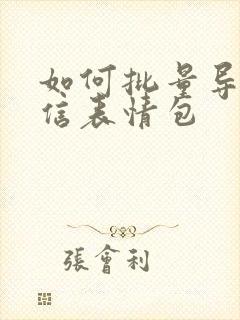 如何批量导
信表情包
張會利